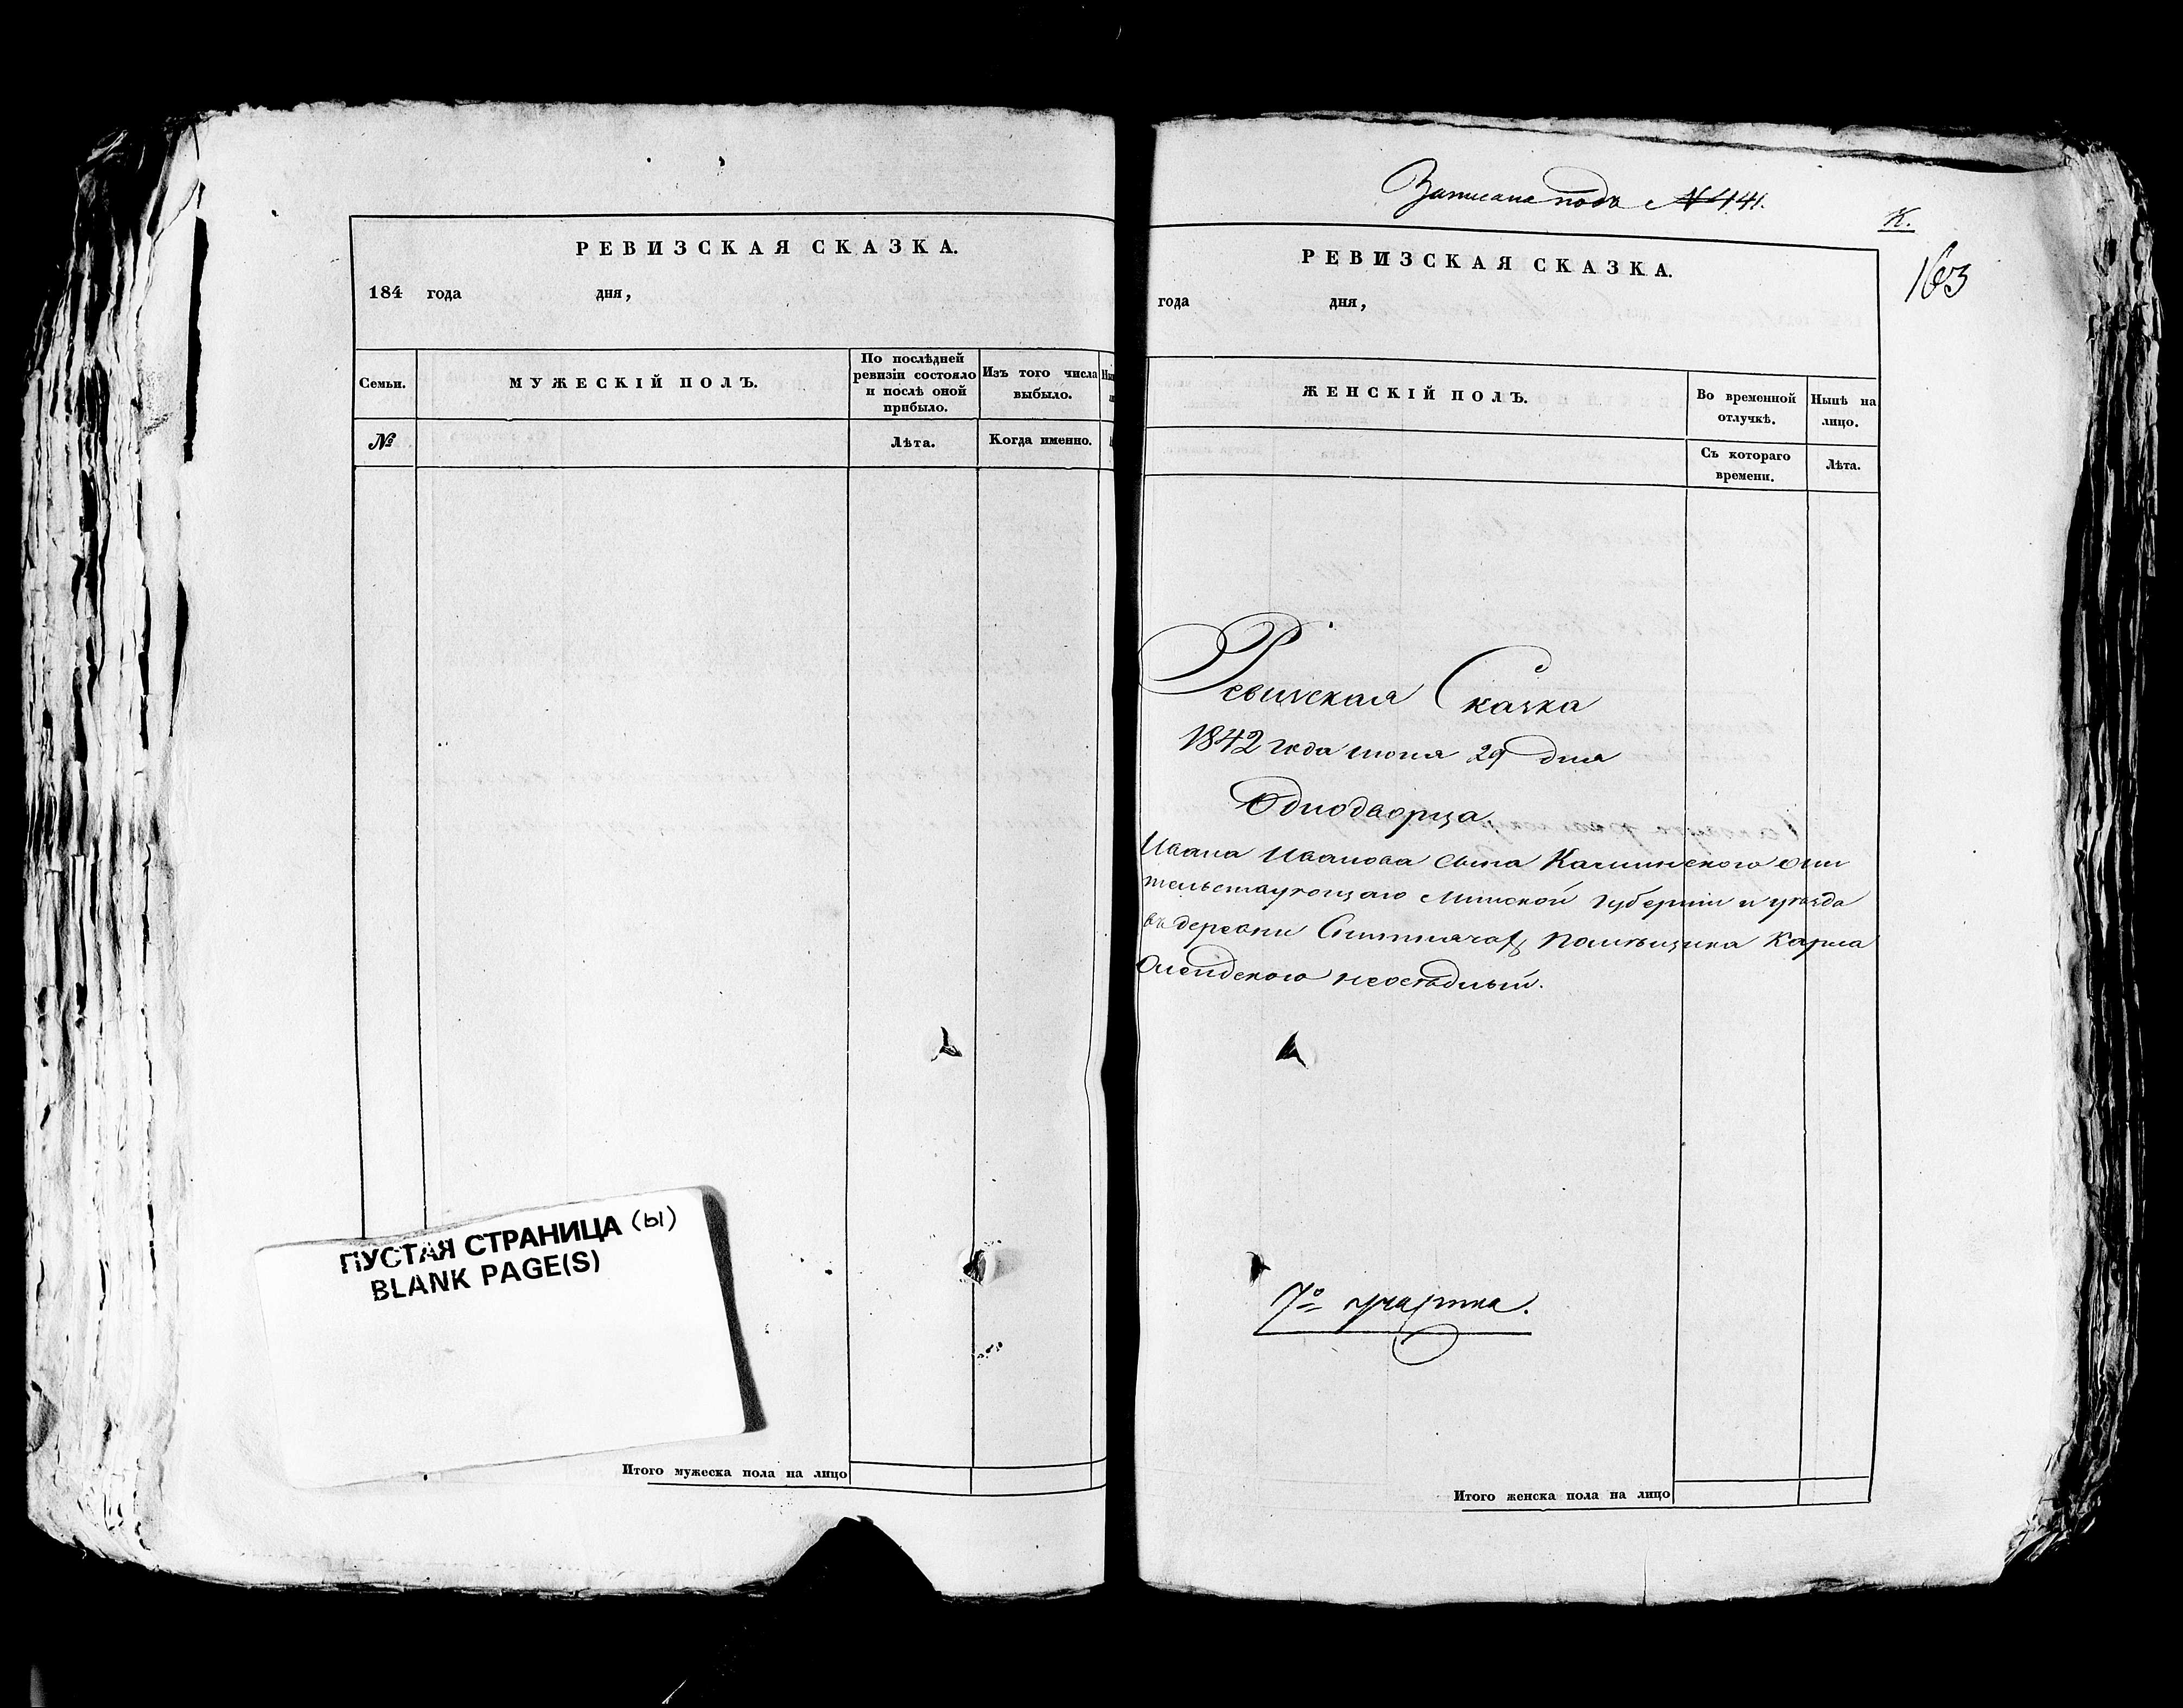 РЕВИЗСКАЯ СКАЗКА.
184 года дня,
Семьи.
МУЖЕСКІЙ ПОЛЪ.
По послѣдней
ревизіи состояло
и послѣ оной
прибыло.
Изъ того числа
выбыло.
№
Лѣта.
Когда именно.
ПУСТАЯ СТРАНИЦА (ы)
BLANK PAGE(S)
Итого мужеска пола на лицо
Записана подъ №441.
К.
163
РЕВИЗСКАЯ СКАЗКА.
года дня,
ЖЕНСКІЙ ПОЛЪ.
Во временной
отлучкѣ.
Нынѣ на
лицо.
Съ котораго
времени.
Лѣта.
Ревизская Сказка
1842 года июня 29 дня
Однодворца
Ивана Иванова сына жи
тельствующаго Минской губерніи и уѣзда
въ деревни помѣщика Карла
неосѣдлый.
7º участка.
Итого женска пола на лицо